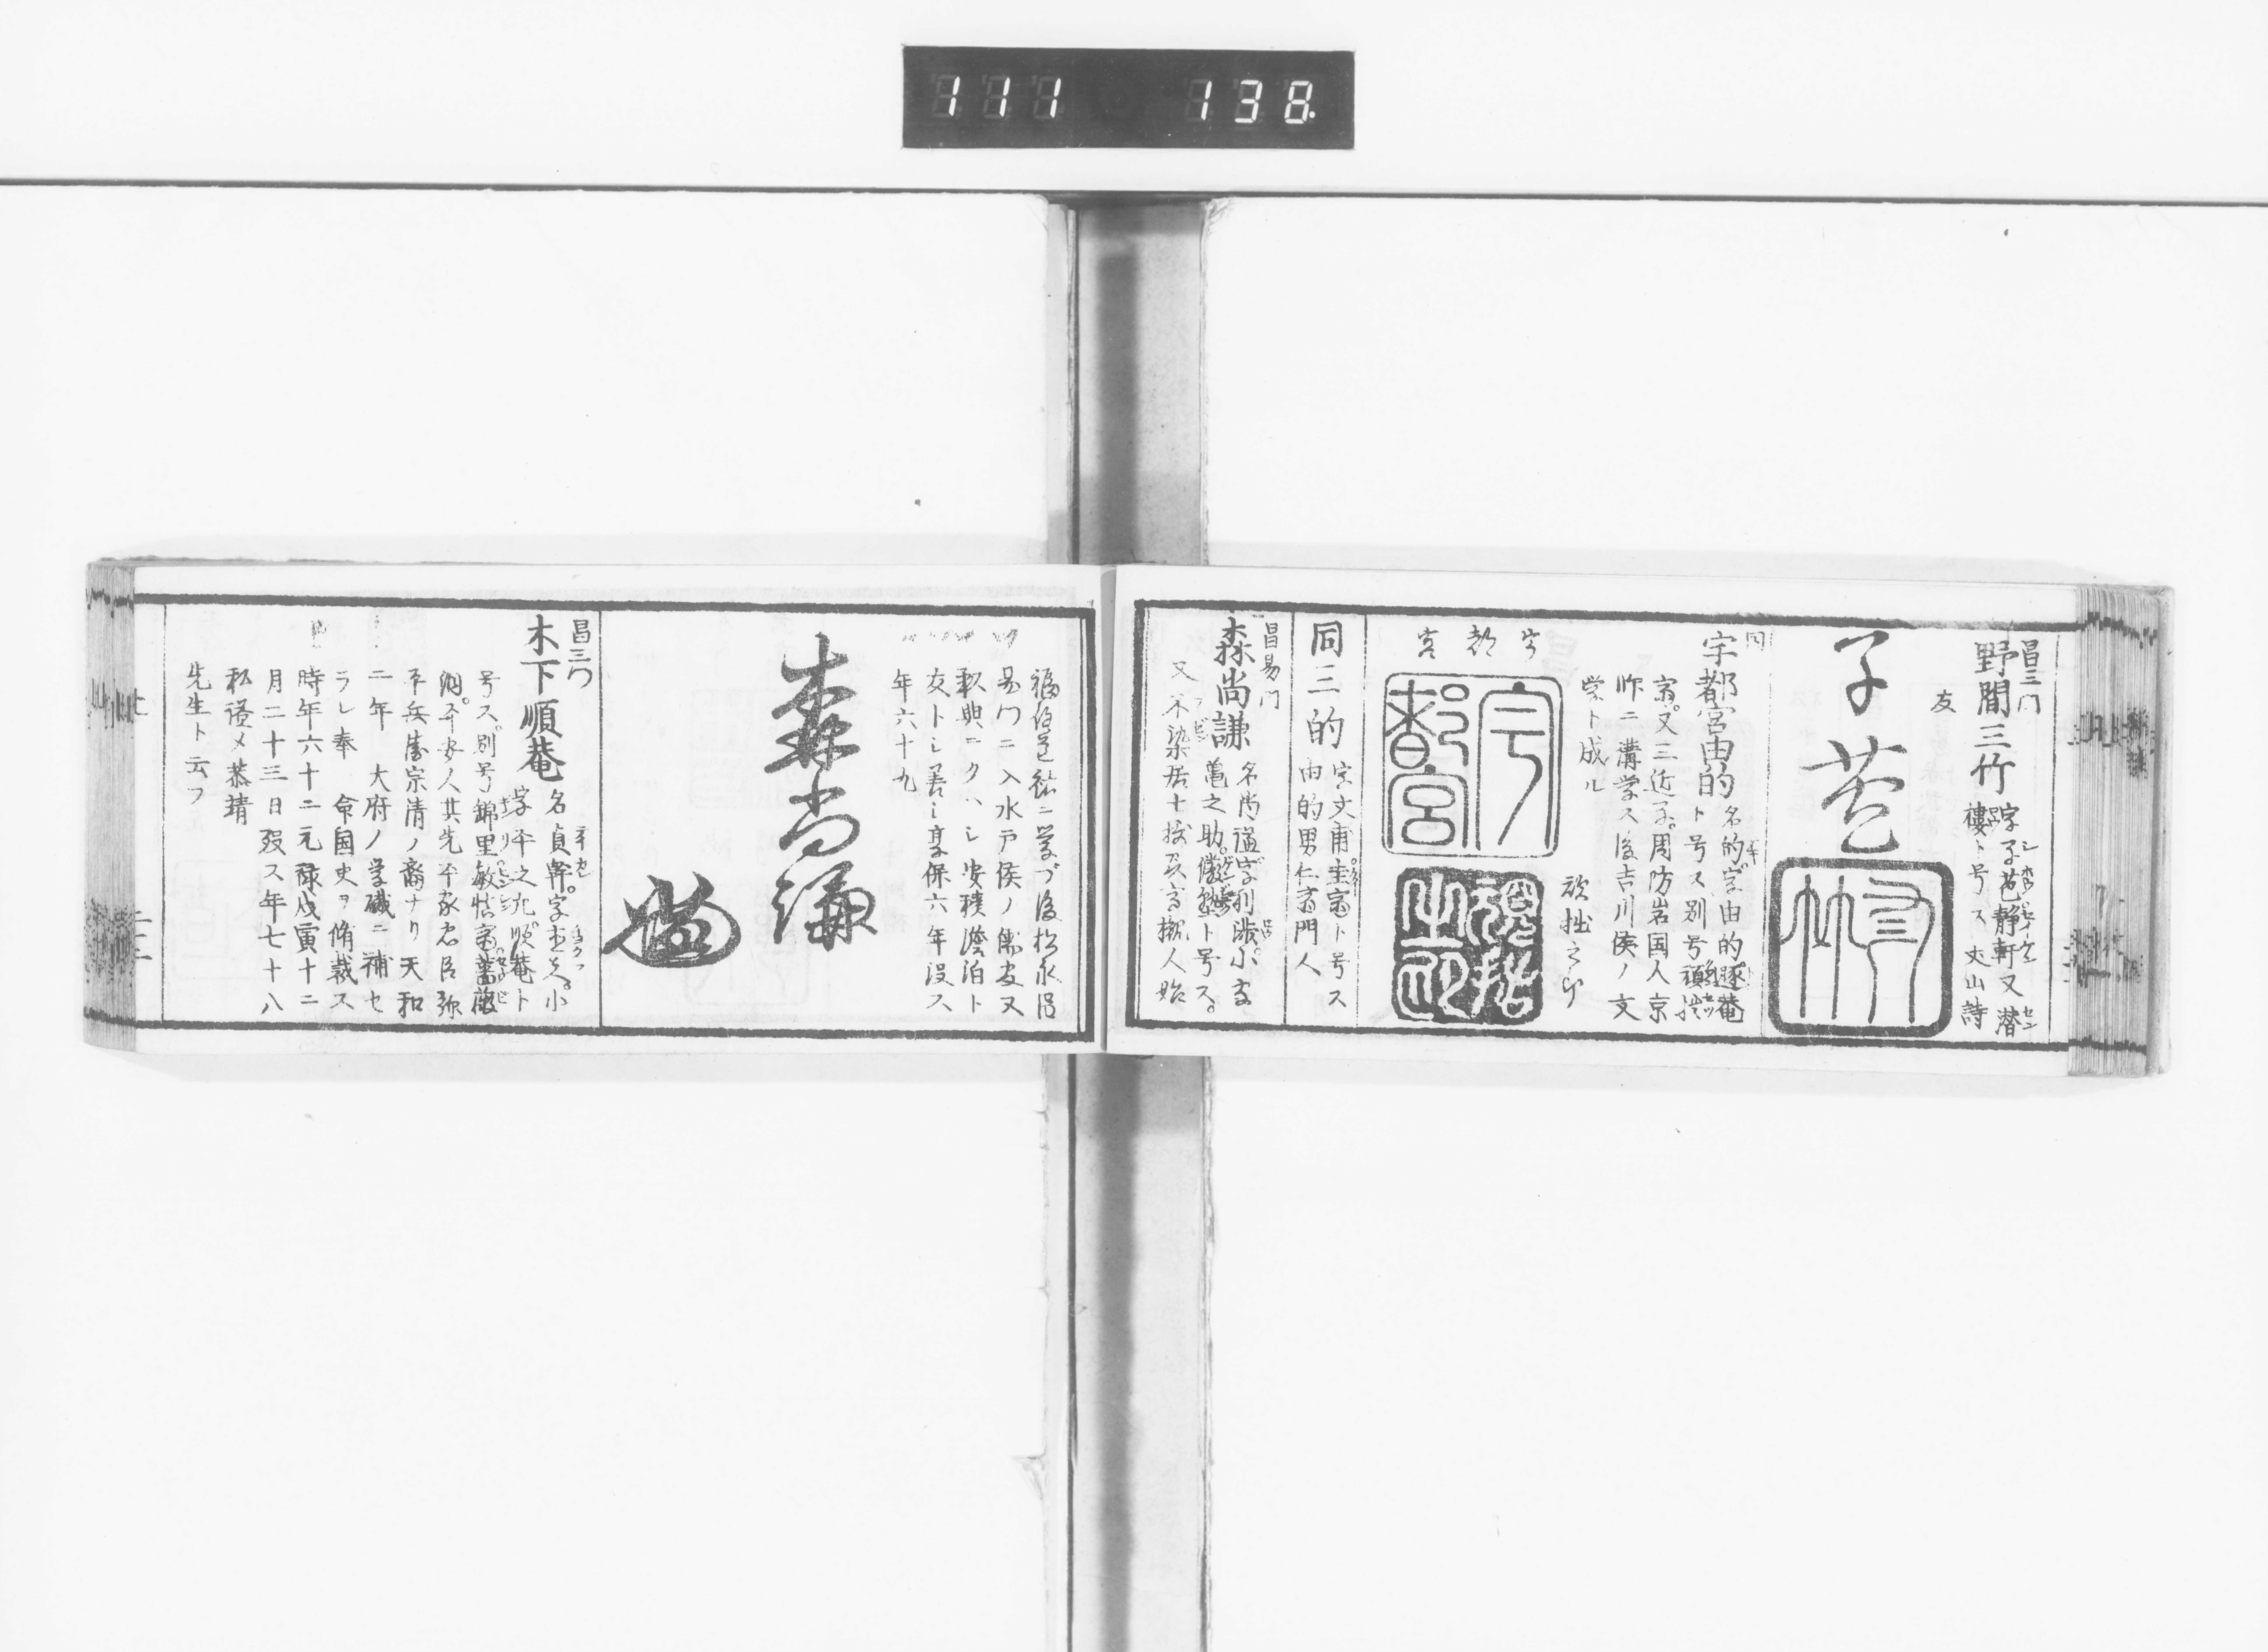 111 138
昌三門
野間三竹
字子苞静軒又潜
樓ト号ス丈山詩
友
子苞
同
宇都宮由的
名的字由的遯菴
ト号ス別号頑拙
又三近子周防岩国人京
昨ニ講学ス後吉川侯ノ文
学ト成ル
頑拙之印
宇都宮
同三的
字文甫圭斎ト号ス
由的男仁斎門人
昌易門
森尚謙
名尚謙字利渉小字
亀之助儼塾ト号ス
又不染居士
福住道祐ニ学ブ後松永昌
易門ニ入水戸侯ノ儒史又
安積澹泊ト
友トシ善シ享保六年没ス
年六十九
森尚謙
昌三門
木下順菴
名貞幹字直夫小
字平之允順菴ト
号ス別号錦里敏慎斎薔薇
洞平安人其先
平兵衛宗清ノ裔ナリ天和
二年 大府ノ学職ニ補セ
ラレ奉 命国史ヲ脩裁ス
時年六十二元禄戊寅十二
月二十三日歿ス年七十八
私謚メ恭靖
先生ト云フ